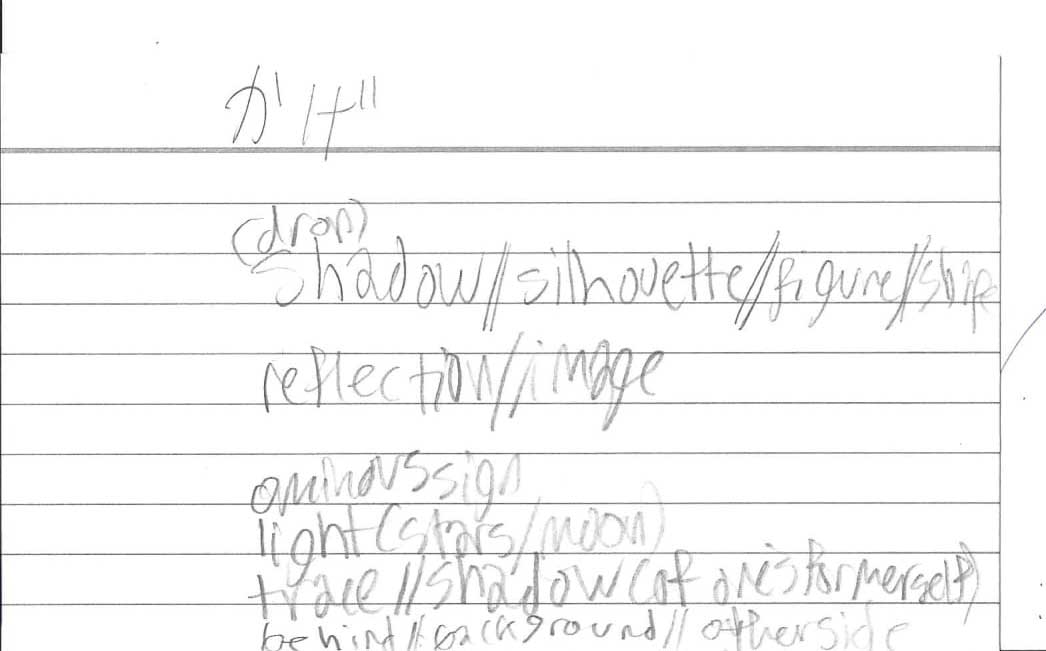 かげ
shadow//silhouette//figure//shape
reflection//image
ominous sign
light (stars/moon)
trace//shadow (of one's former self)
behind//background//other side